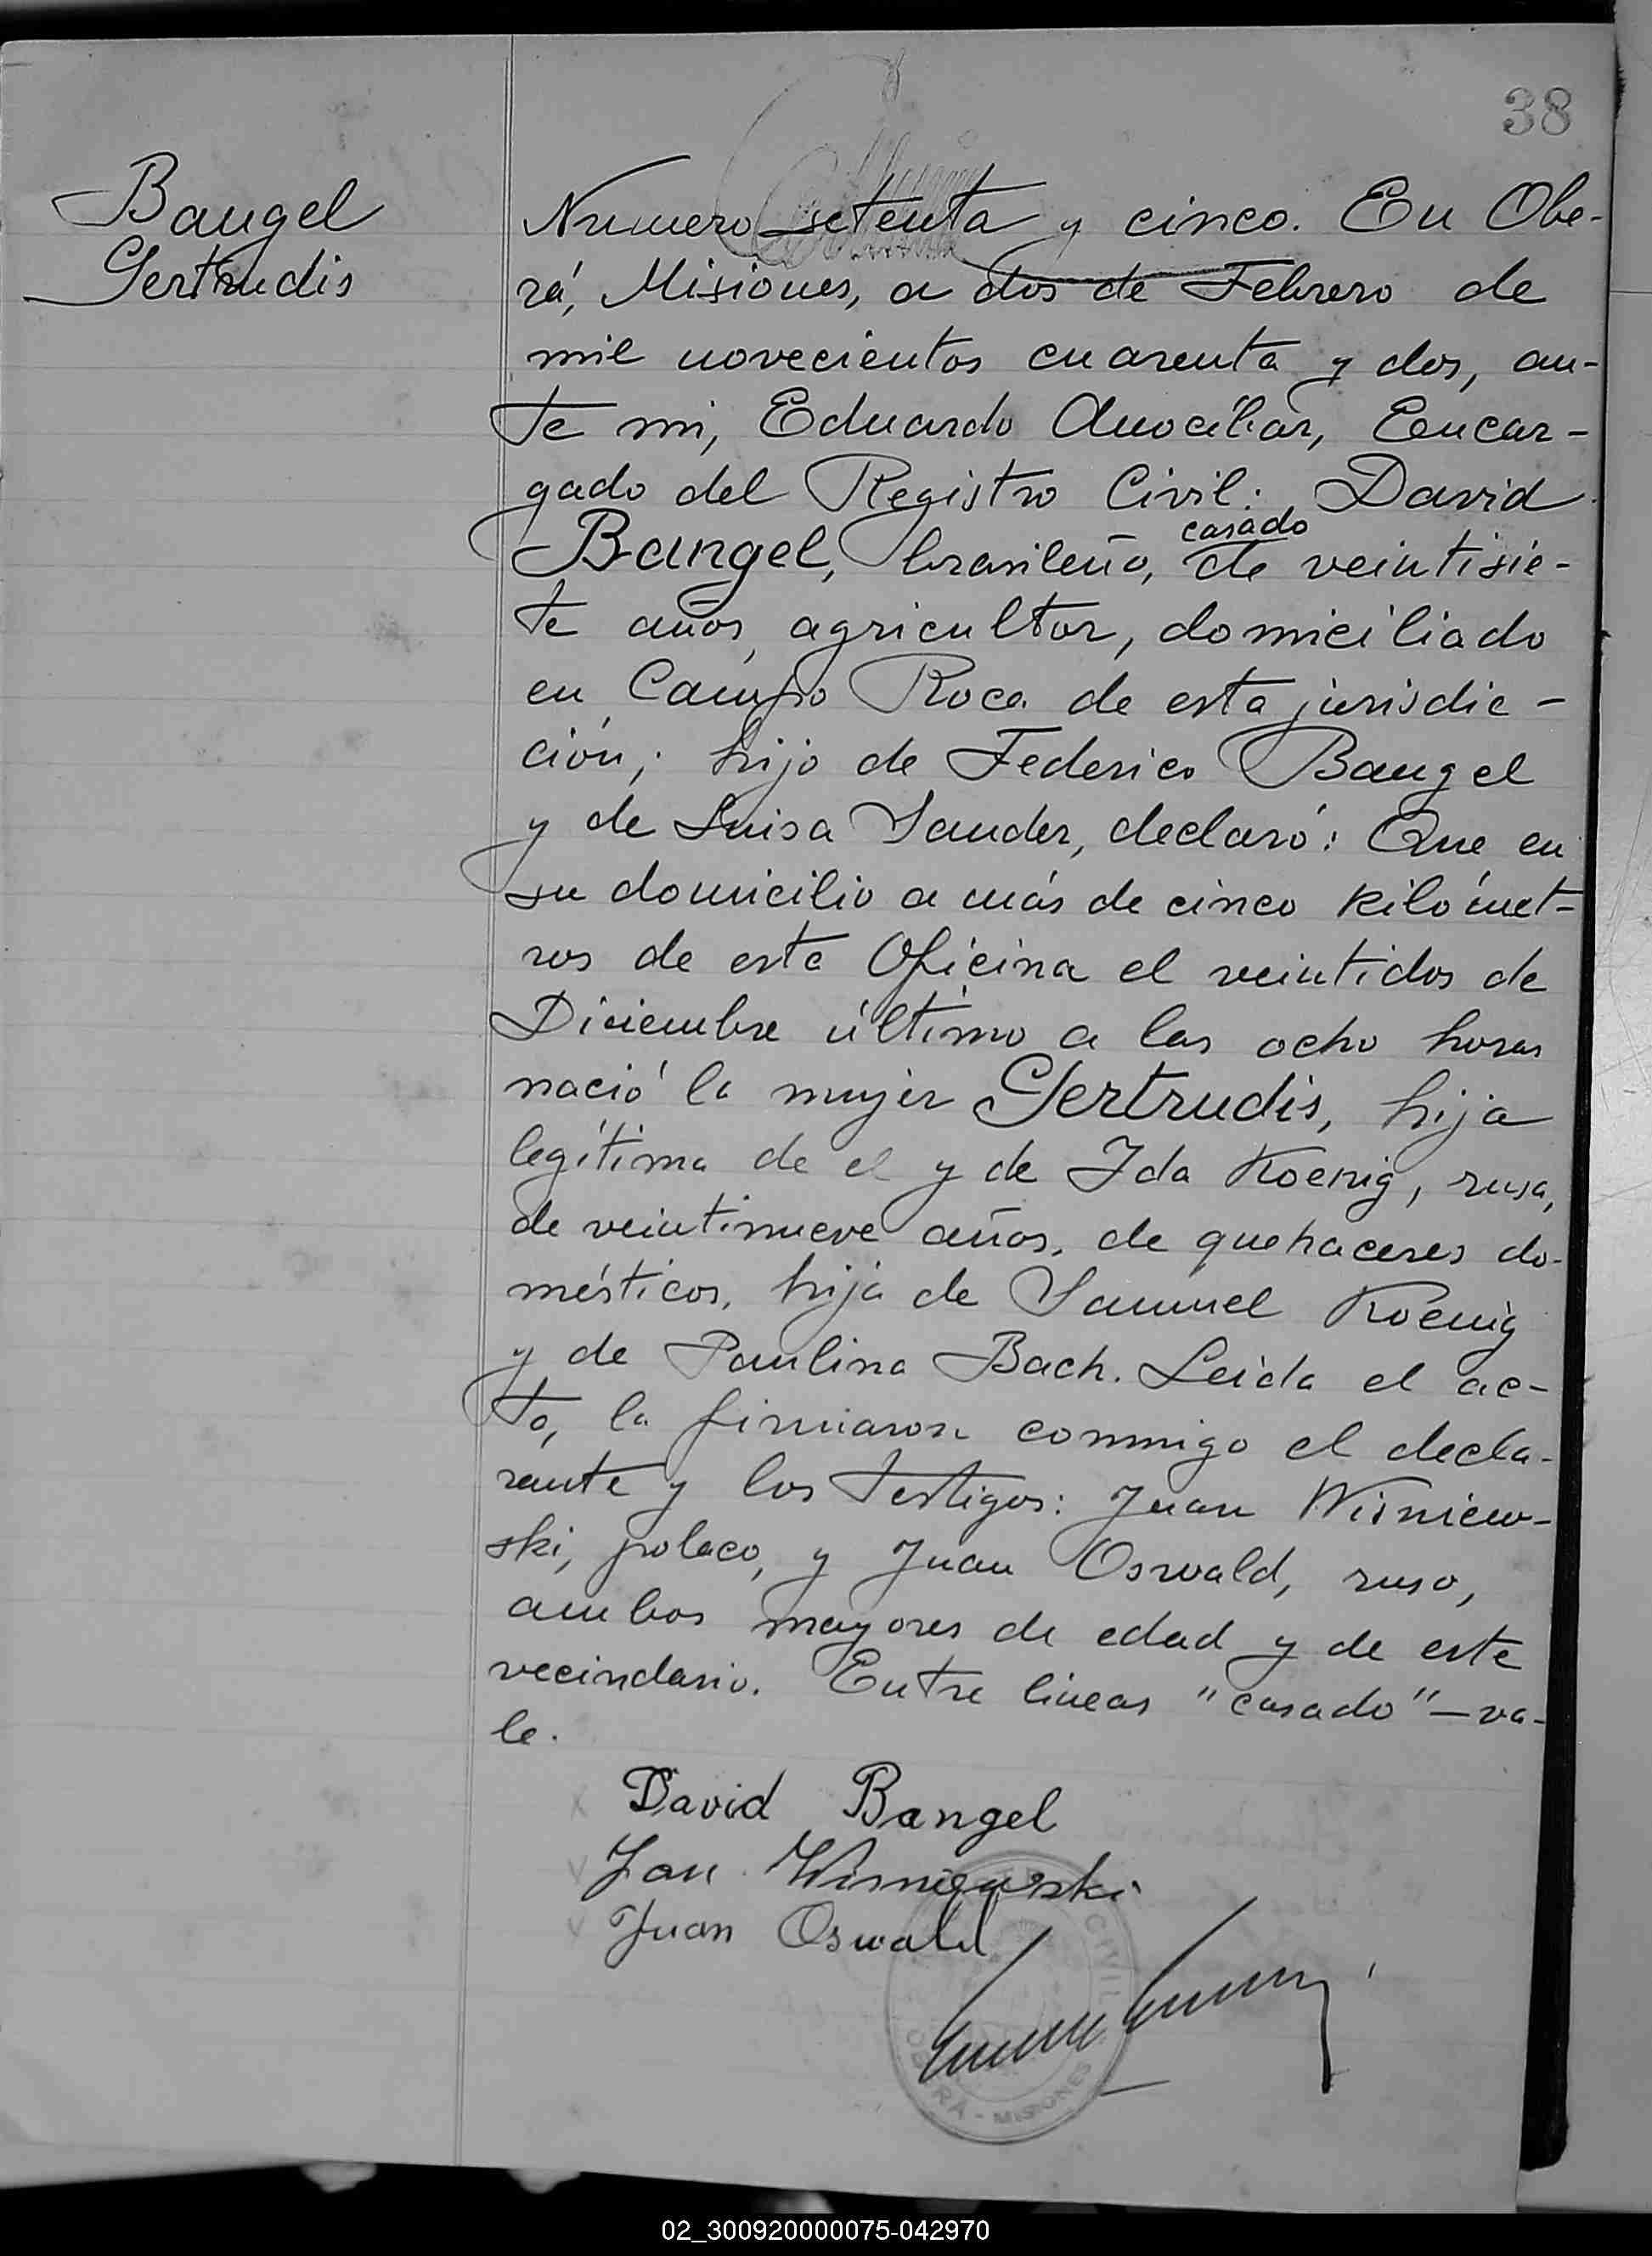 38
Bangel
Gertrudis
Numero setenta y cinco. En Obe-
rá, Misiones, a dos de Febrero de
mil novecientos cuarenta y dos, an-
te mi, Eduardo Encar-
gado del Registro Civil: David
casado
Bangel, brasileño, de veintisie-
te años, agricultor, domiciliado
en Campo Roca de esta jurisdic-
ción; hijo de Federico Bangel
y de Luisa Sander, declaró: Que en
su domicilio a más de cinco kilómet-
ros de esta Oficina el veintidos de
Diciembre último a las ocho horas
nació la mujer Gertrudis, hija
legítima de el y de Ida Koenig, rusa,
de veintinueve años, de quehaceres do-
mésticos, hija de Samuel Koenig
y de Paulina Bach. Leida el ac-
to, la firmaron conmigo el decla-
rante y los testigos: Juan Wisniew-
ski, polaco, y Juan Oswald, ruso,
ambos mayores de edad y de este
vecindario. Entre lineas "casado"-va-
le.
David Bangel
Jan Wisniewski
Juan Oswald
CIVIL
OBERÁ - MISIONES
02_300920000075-042970